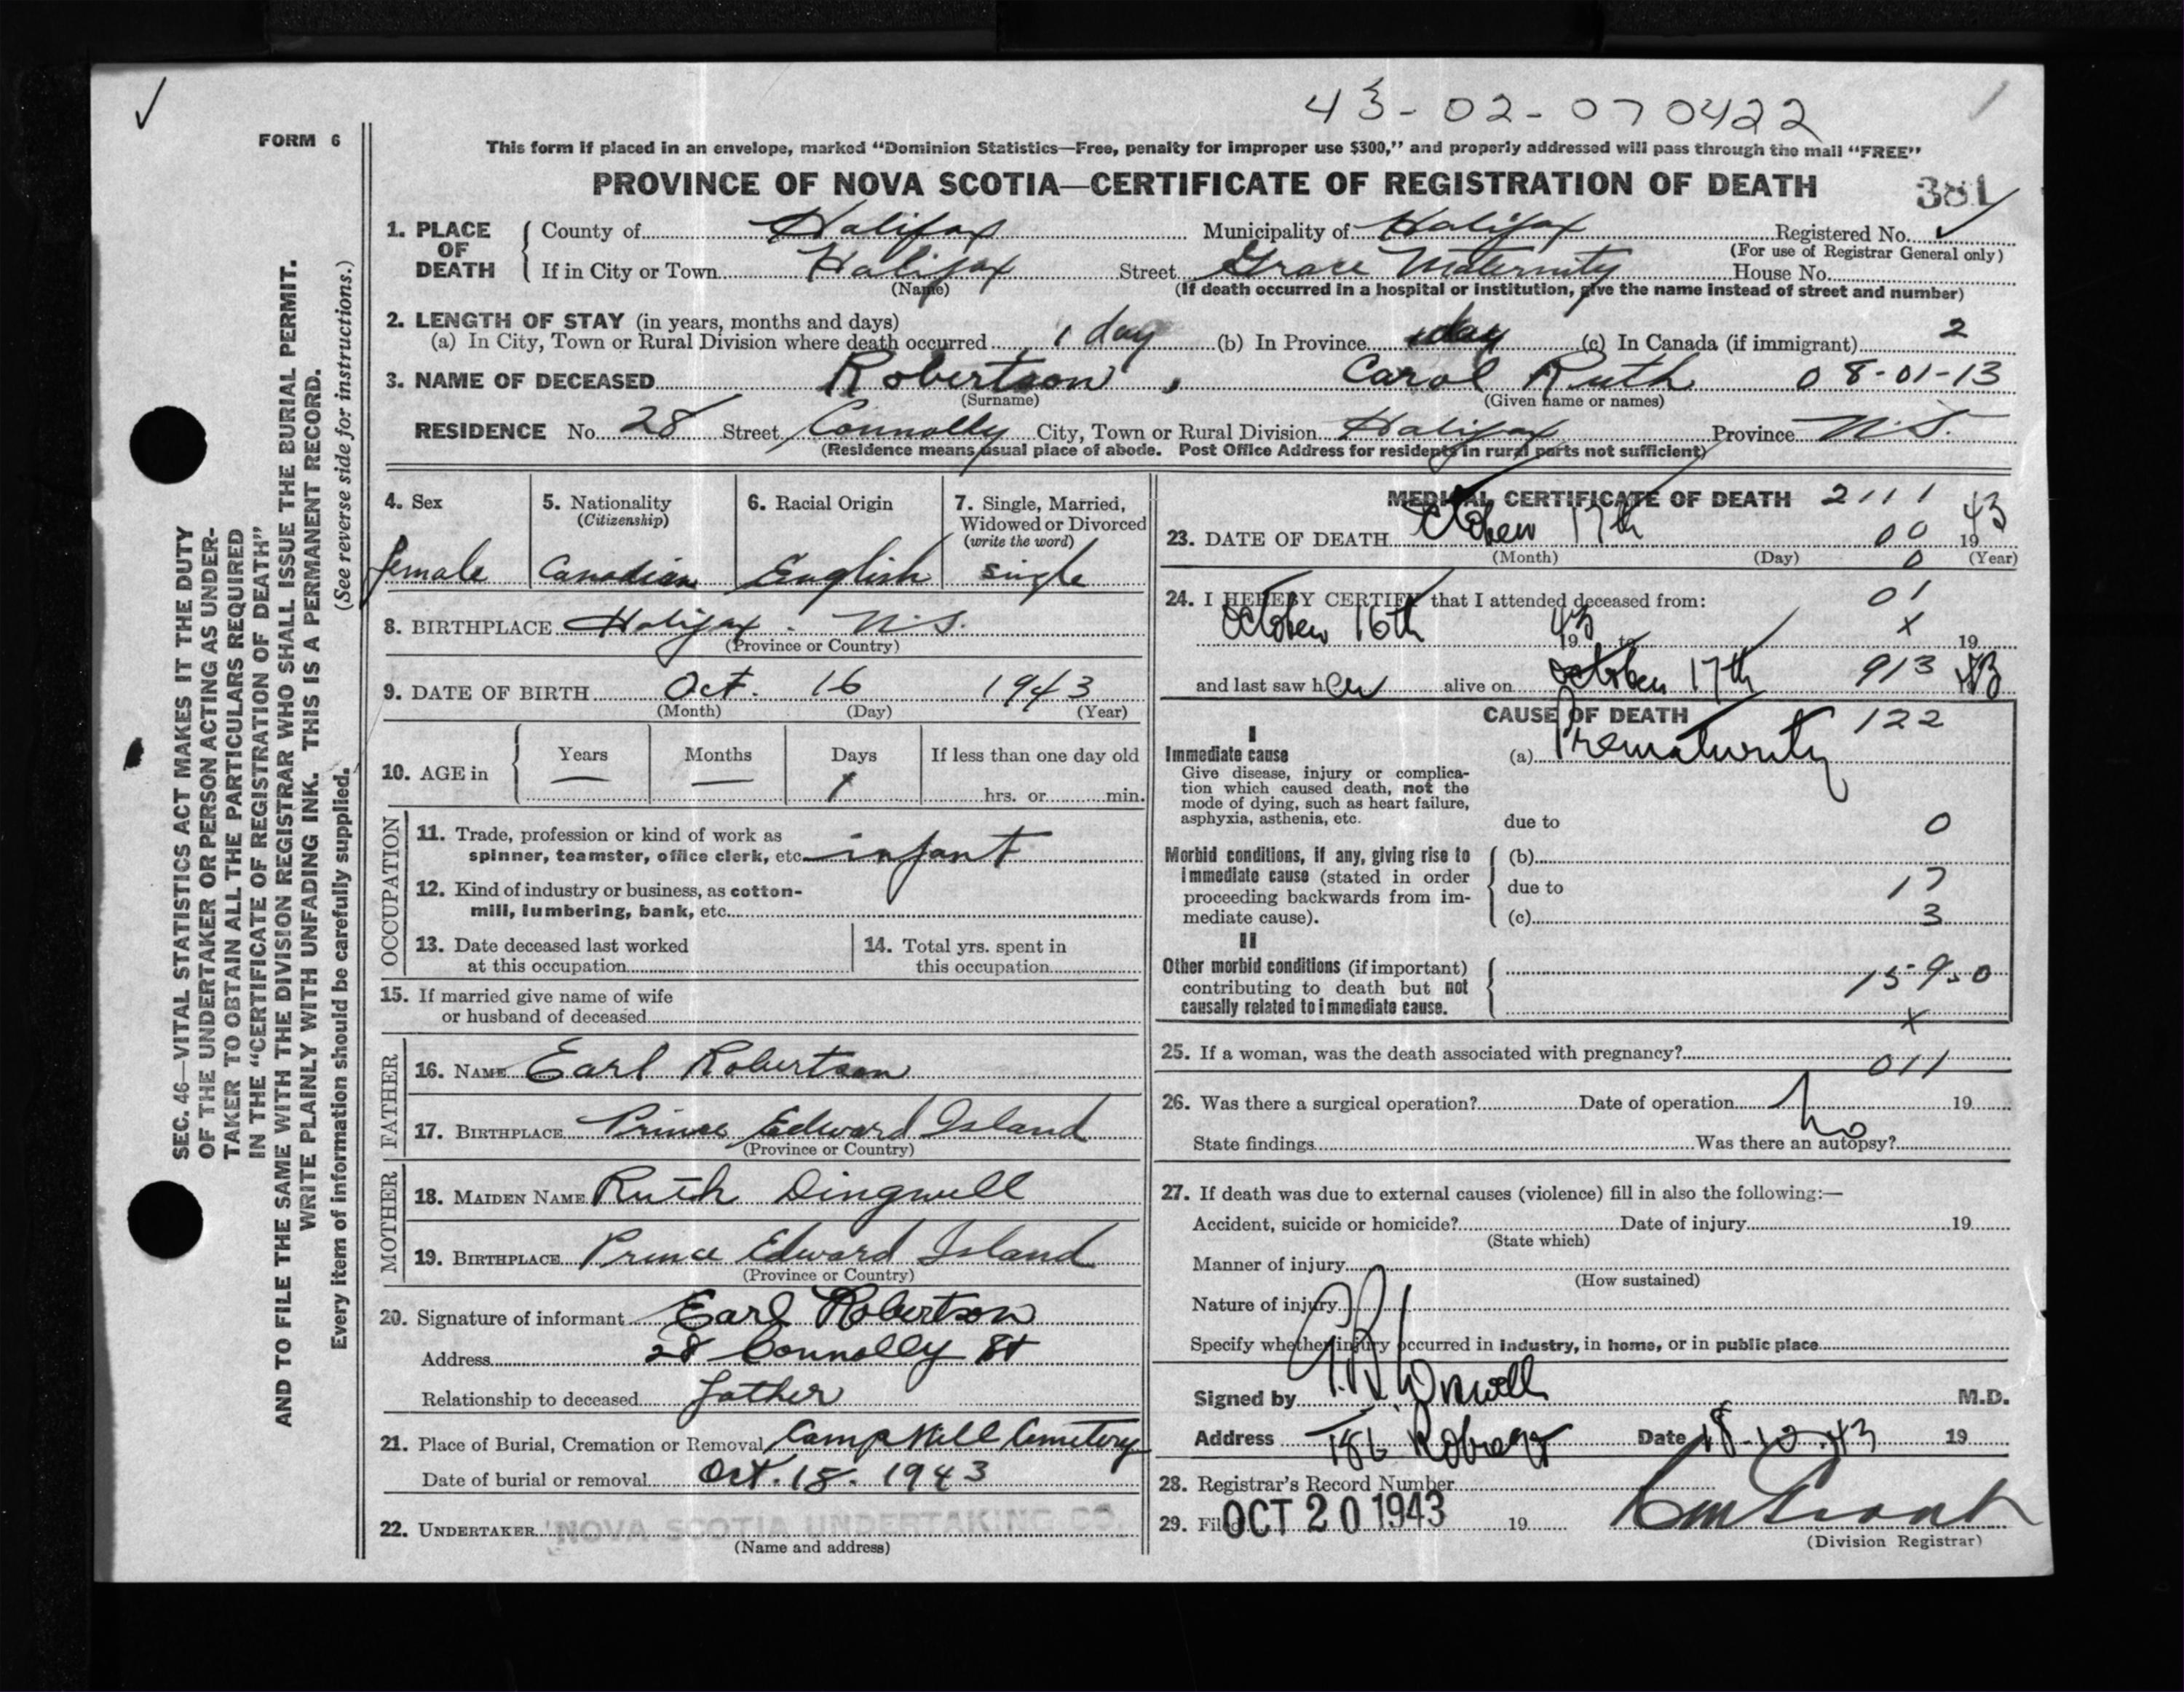 43-02-070422
FORM 6
This form if placed in an envelope, marked "Dominion Statistics—Free, penalty for improper use $300," and properly addressed will pass through the mail "FREE"
PROVINCE OF NOVA SCOTIA—CERTIFICATE OF REGISTRATION OF DEATH 381
1. PLACE OF DEATH County of Halifax Municipality of Halifax Registered No.
(For use of Registrar General only)
If in City or Town Halifax Street Grace Maternity House No.
(Name) (If death occurred in a hospital or institution, give the name instead of street and number)
2. LENGTH OF STAY (in years, months and days)
(a) In City, Town or Rural Division where death occurred 1 day (b) In Province 1 day (c) In Canada (if immigrant) 2
3. NAME OF DECEASED Robertson, Carol Ruth 08-01-13
(Surname) (Given name or names)
RESIDENCE No. 28 Street Connolly City, Town or Rural Division Halifax Province N.S.
(Residence means usual place of abode. Post Office Address for residents in rural parts not sufficient)
4. Sex 5. Nationality 6. Racial Origin 7. Single, Married,
(Citizenship) Widowed or Divorced
(write the word)
female Canadian English single
8. BIRTHPLACE Halifax. N.S.
(Province or Country)
9. DATE OF BIRTH Oct. 16 1943
(Month) (Day) (Year)
10. AGE in Years Months Days If less than one day old
— — 1 hrs. or min.
OCCUPATION
11. Trade, profession or kind of work as
spinner, teamster, office clerk, etc. infant
12. Kind of industry or business, as cotton-
mill, lumbering, bank, etc.
13. Date deceased last worked
at this occupation
14. Total yrs. spent in
this occupation
15. If married give name of wife
or husband of deceased
FATHER
16. NAME Earl Robertson
17. BIRTHPLACE Prince Edward Island
(Province or Country)
MOTHER
18. MAIDEN NAME Ruth Dingwell
19. BIRTHPLACE Prince Edward Island
(Province or Country)
20. Signature of informant Earl Robertson
Address 28 Connolly St
Relationship to deceased father
21. Place of Burial, Cremation or Removal Camp Hill Cemetery
Date of burial or removal Oct. 18. 1943
22. UNDERTAKER NOVA SCOTIA UNDERTAKING CO.
(Name and address)
MEDICAL CERTIFICATE OF DEATH 2111
23. DATE OF DEATH October 17th 00 1943
(Month) (Day) 0 (Year)
24. I HEREBY CERTIFY that I attended deceased from: 01
October 16th 1943 to x 19
and last saw her alive on October 17th 913 43
CAUSE OF DEATH 122
I
Immediate cause (a) Prematurity
Give disease, injury or complica-
tion which caused death, not the
mode of dying, such as heart failure,
asphyxia, asthenia, etc.
due to 0
Morbid conditions, if any, giving rise to
immediate cause (stated in order
proceeding backwards from im-
mediate cause).
(b)
due to 17
(c) 3
II
Other morbid conditions (if important)
contributing to death but not
causally related to immediate cause.
159.0
x
25. If a woman, was the death associated with pregnancy? 011
26. Was there a surgical operation? Date of operation 19
State findings Was there an autopsy? no
27. If death was due to external causes (violence) fill in also the following:—
Accident, suicide or homicide? Date of injury 19
(State which)
Manner of injury
(How sustained)
Nature of injury
Specify whether injury occurred in industry, in home, or in public place
Signed by M.D.
Address Date 18-10-43 19
28. Registrar's Record Number
29. Filed OCT 20 1943 19
(Division Registrar)
SEC. 46—VITAL STATISTICS ACT MAKES IT THE DUTY
OF THE UNDERTAKER OR PERSON ACTING AS UNDER-
TAKER TO OBTAIN ALL THE PARTICULARS REQUIRED
IN THE "CERTIFICATE OF REGISTRATION OF DEATH"
AND TO FILE THE SAME WITH THE DIVISION REGISTRAR WHO SHALL ISSUE THE BURIAL PERMIT.
WRITE PLAINLY WITH UNFADING INK. THIS IS A PERMANENT RECORD.
Every item of information should be carefully supplied. (See reverse side for instructions.)